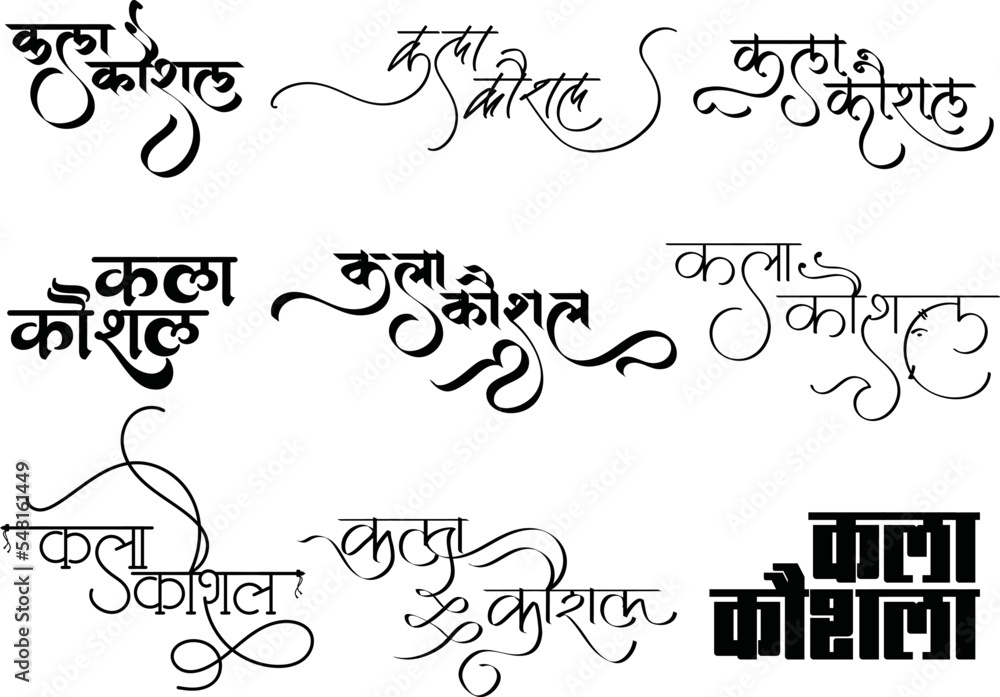 कला
कौशल
कला
कौशल
कला
कौशल
कला
कौशल
कला
कौशल
कला
कौशल
कला
कौशल
कला
कौशल
कला
कौशला
Adobe Stock | #543161449